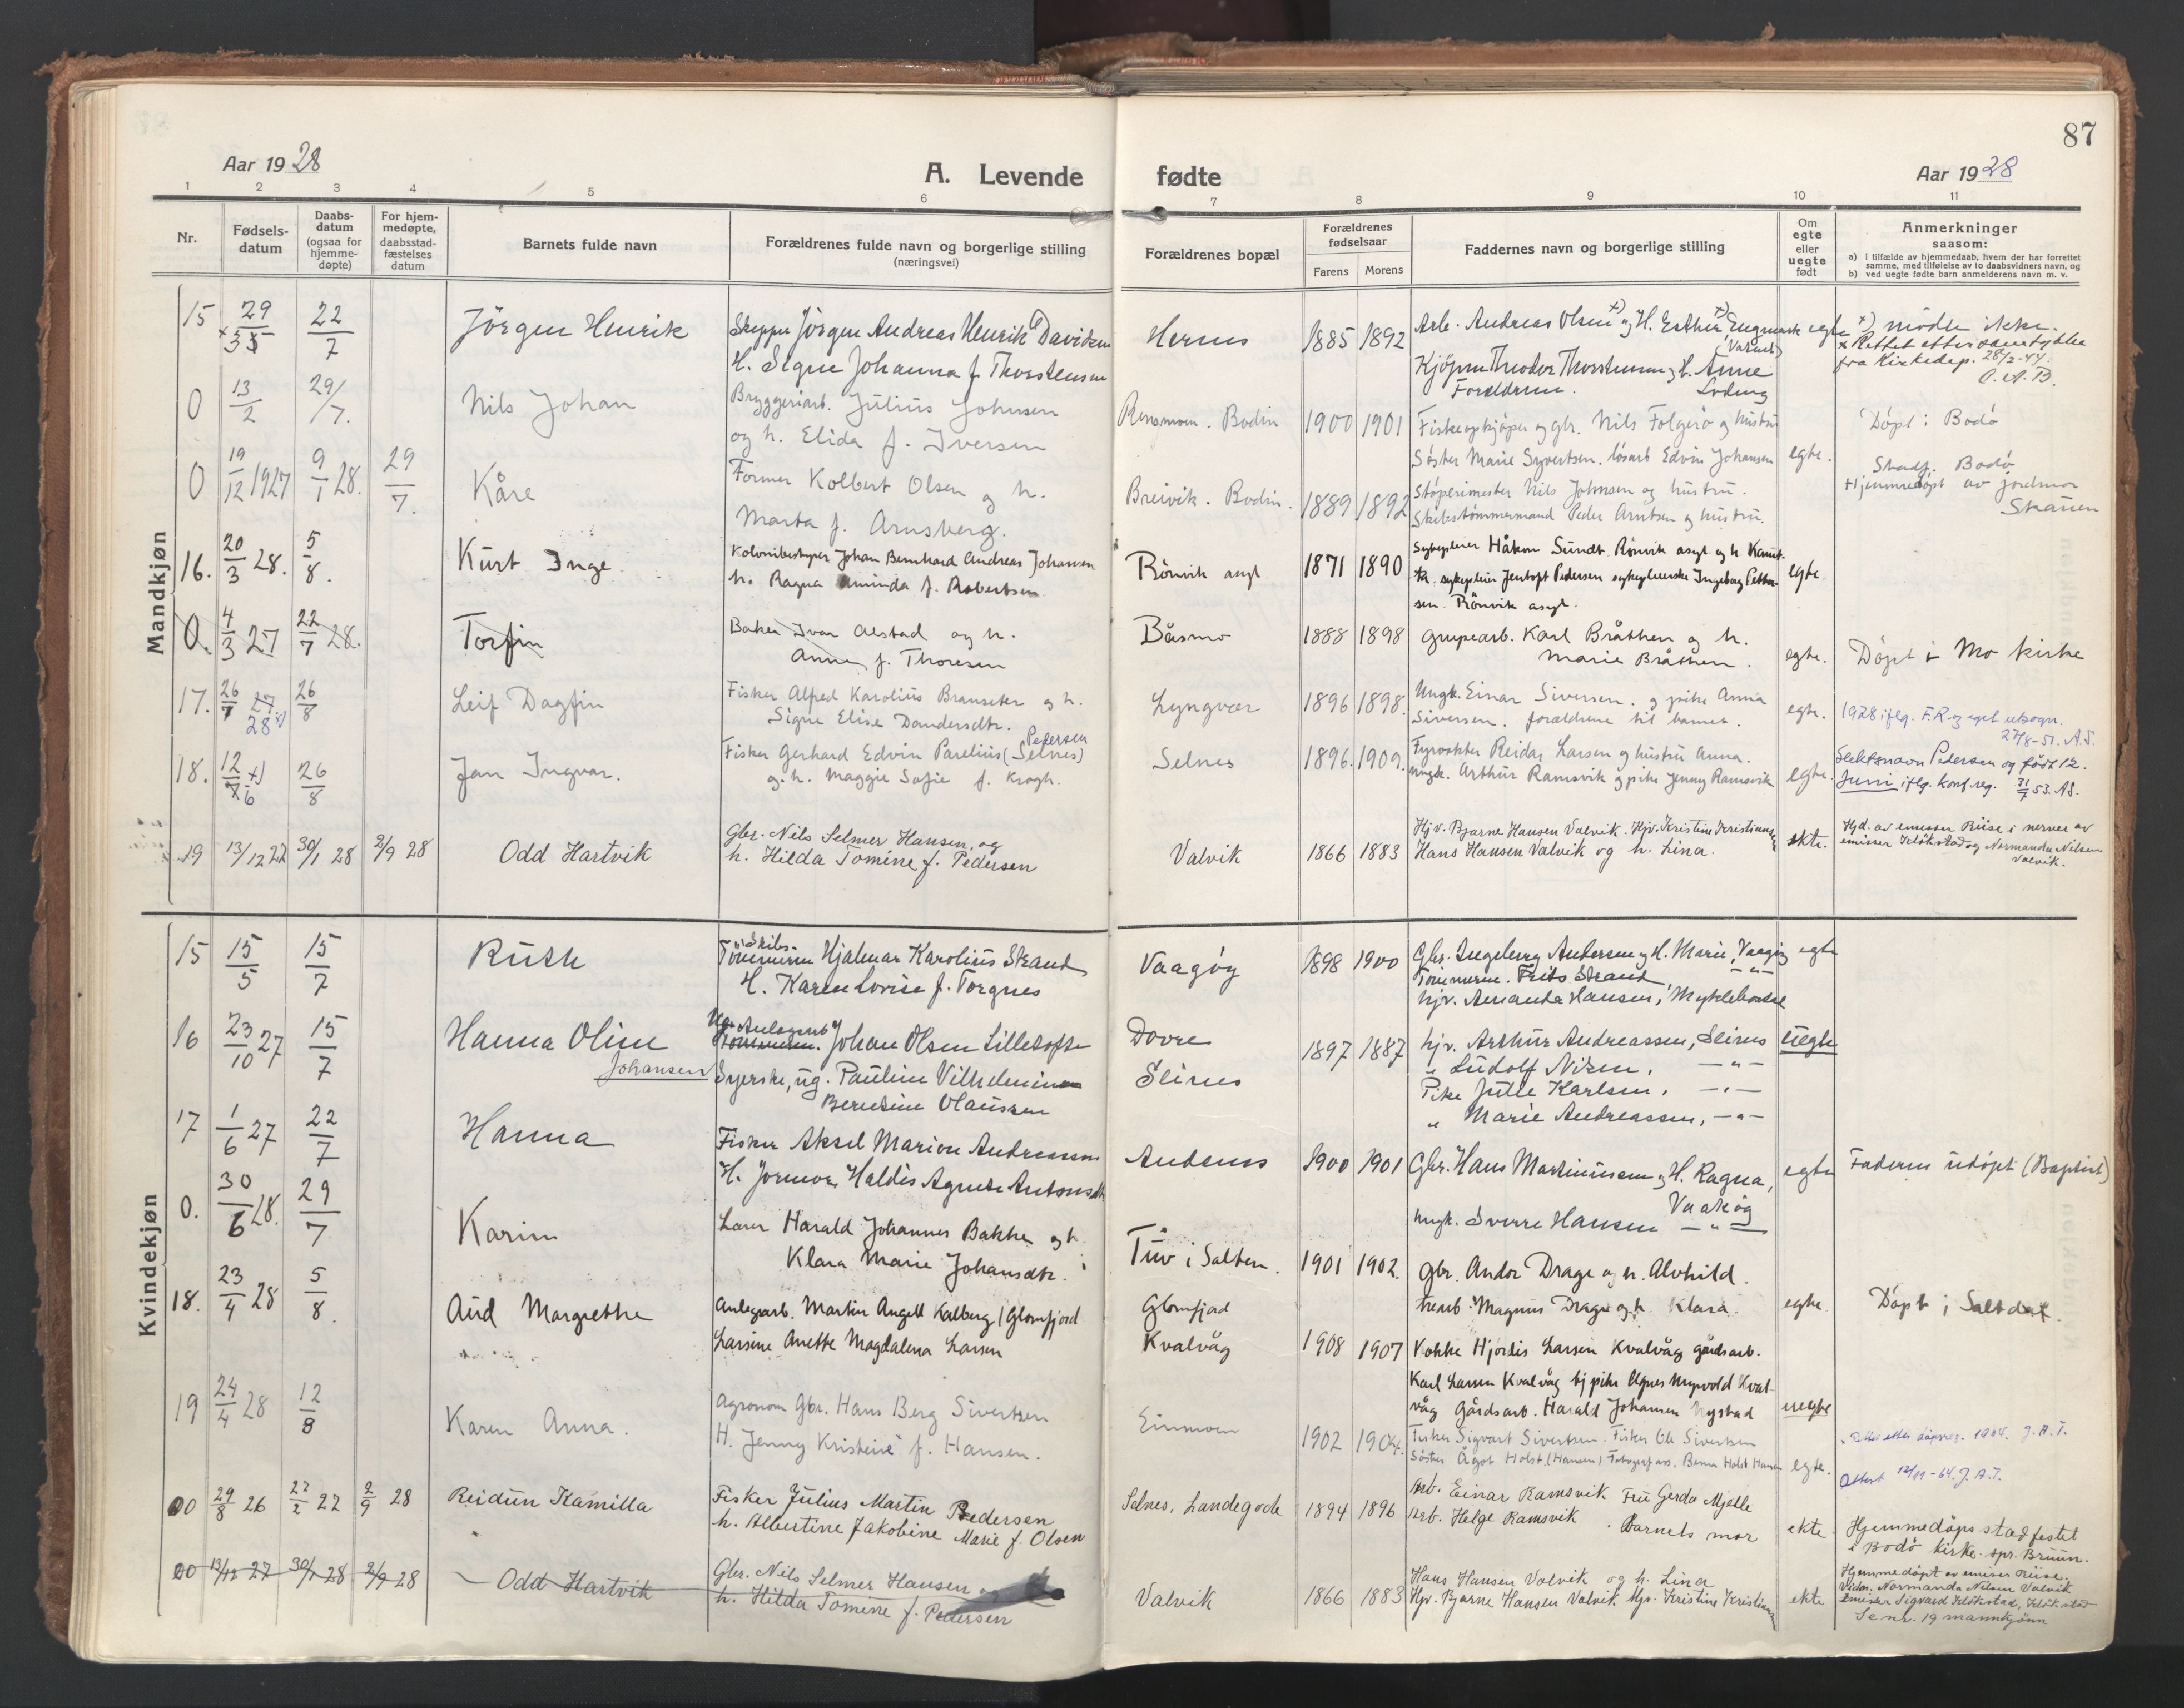 87
Aar 1928
A. Levende fødte
Aar 1928
1 2 3 4 5 6 7 8 9 10 11
Nr.
Fødsels-datum
Daabs-datum (ogsaa for hjemme-døpte)
For hjem-medøpte, daabsstad-fæstelses datum
Barnets fulde navn
Forældrenes fulde navn og borgerlige stilling (næringsvei)
Forældrenes bopæl
Forældrenes fødselsaar
Farens Morens
Faddernes navn og borgerlige stilling
Om egte eller uegte født
Anmerkninger saasom:
a) i tilfælde av hjemmedaab, hvem der har forrettet samme, med tilføielse av to daabsvidners navn, og
b) ved uegte fødte barn anmelderens navn m. v.
Mandkjøn
15 29/5 22/7 Jörgen Henrik Skipper Jörgen Andreas Henrik Davidsen Hernes 1885 1892 Arb. Andreas Olsen +) og H. Esther +) Engmark egte +) mödte ikke.
H. Signe Johanna f. Thorstensen Kjöpm Theodor Thorstensen og h. Anne Löding
Forældrene.
x Rettet etter samtykke fra Kirkedep. 28/2-44. O.A.B.
0 13/2 29/7. Nils Johan Bryggeriarb. Julius Johnsen Rensmoen. Bodin 1900 1901 Fiskeopkjöper og gbr. Nils Folgerö og hustru
og h. Elida f. Iversen Söster Marie Syvertsen. lösarb Edvin Johansen egte. Döpt i Bodö
0 19/12 1927 9/1 28. 29/7. Kåre Former Kolbert Olsen og h. Breivik. Bodin. 1889 1892 Stöperimester Nils Johnsen og hustru.
Marta f. Arnsberg. Skibstömmermand Peder Arntsen og hustru.
Stadf. Bodö
Hjemmedöpt av jordmor
16. 20/3 28. 5/8. Kurt Inge Kolonibestyrer Johan Bernhard Andreas Johansen Rönvik asyl 1871 1890 Sykepleier Håkon Sundt. Rönvik asyl og h.
h. Ragna Aminda f. Robertsen sykepleier Jentoft Pedersen sykepleierske Ingeborg Petter-sen. Rönvik asyl. egte.
0. 4/3 27 22/7 28. Torfin Baker Ivar Alstad og h. Båsmo 1888 1898 grupearb. Karl Bråthen og h.
Anna f. Thoresen Marie Bråthen. egte. Döpt i Mo kirke
17. 26/7 27 28 26/8 Leif Dagfin Fisker Alfred Karolius Branseter og h. Lyngvær 1896 1898. Ungk. Einar Siversen. og pike Anna
Signe Elise Dandersdtr. Siversen. forældrene til barnet. egte. 1928 iflg. F.R. og eget utsagn. 27/8-51. A.S.
18. 12/7 +) 6 26/8 Jan Ingvar. Fisker Gerhard Edvin Parelius (Selnes) Pedersen Selnes 1896. 1909. Fyrvokter Reidar Larsen og hustru Anna.
og h. Maggie Sofie f. Krogh. ungk. Arthur Ramsvik og pike Jenny Ramsvik egte. Slektsnavn Pedersen og född 12. Juni iflg. konf.reg. 31/7 53. A.S.
19 13/12 27 30/1 28 2/9 28 Odd Hartvik Gbr. Nils Selmer Hansen, og Valvik 1866 1883 Hjv. Bjarne Hansen Valvik. Hjv. Kristine Kristiansen
h. Hilda Tomine f. Pedersen Hans Hansen Valvik og h. Lina. ekte. Hjd. av emissær Riise i nærvær av emissær Klökstad og Normanda Nilsen Valvik.
Kvindekjøn
15 15/5 15/7 Ruth Skibs-Tömmerm Hjalmar Karolius Strand Vaagöy 1898 1900 Gbr. Ingeberg Andersen og H. Marie, Vaagöy egte
H. Karen Lovise f. Torgnes Tömmerm. Frits Strand, — " —
hjv. Amanda Hansen, Myklebostad
16 23/10 27 15/7 Hanna Oline Johansen Ug. Anlegsarb. Tömmerm. Johan Olsen Lilletofte Dovre 1897 1887 hjv. Arthur Andreassen, Seines uegte
Syerske, ug. Pauline Vilhelmine Berntine Olaussen Seines " Ludolf Nisen, — " —
Pike Julie Karlsen, — " —
" Marie Andreassen, — " —
17 1/6 27 22/7 Hanna Fisker Aksel Marion Andreassen Andenes 1900 1901 Gbr. Hans Martinussen og H. Ragna, egte Faderen udöpt (Baptist)
H. Haldis Agnete Antonsdtr Vaaköy
Ungk. Sverre Hansen — " —
0. 30/6 28. 29/7 Karin Lærer Harald Johannes Bakke og h. Tuv i Salten. 1901 1902. gbr. Andor Drage og h. Alvhild.
Klara Marie Johansdtr. Magnus Drage og h. Klara. egte. Döpt i Saltdal.
18. 23/4 28 5/8. Aud Margrethe Anlegsarb. Martin Angell Kalberg, Glomfjord Glomfjord
Larsine Anette Magdalena Larsen Kvalvåg 1908 1907 Kokke Hjördis Larsen Kvalvåg gårdsarb.
Karl Larsen Kvalvåg hj pike Agnes Myrvold Kval-våg Gårdsarb. Harald Johansen Nystad uegte
19 24/4 28 12/8 Karen Anna. Agronom Gbr. Hans Berg Sivertsen Einmoen 1902 1904. Fisker Sigvart Sivertsen. Fisker Ole Sivertsen
H. Jenny Kristine f. Hansen. Söster Ågot Holst (Hansen) Fotografass. Berner Holst Hansen egte.
Rettet etter dåpsreg. 1904. J.A.T.
Attest 12/11-64. J.A.T.
00 29/8 26 22/2 27 2/9 28 Reidun Kamilla Fisker Julius Martin Pedersen Selnes, Landegode 1894 1896 Arb. Einar Ramsvik Fru Gerda Mjelle
h. Albertine Jakobine Marie f. Olsen Arb. Helge Ramsvik. Barnets mor ekte Hjemmedöps stadfestet i Bodö kirke. spr. Bruun.
00 13/12 27 30/1 28 2/9 28 Odd Hartvik Gbr. Nils Selmer Hansen og Valvik 1866 1883 Hans Hansen Valvik og h. Lina
h. Hilda Tomine f. Pedersen Hjv. Bjarne Hansen Valvik Hjv. Kristine Kristiansen ekte
Hjemmedöpt av emissær Riise.
Vidn. Normanda Nilsen Valvik
Emissær Sigvard Klökstad, Klökstad
Se nr. 19 mannkjönn